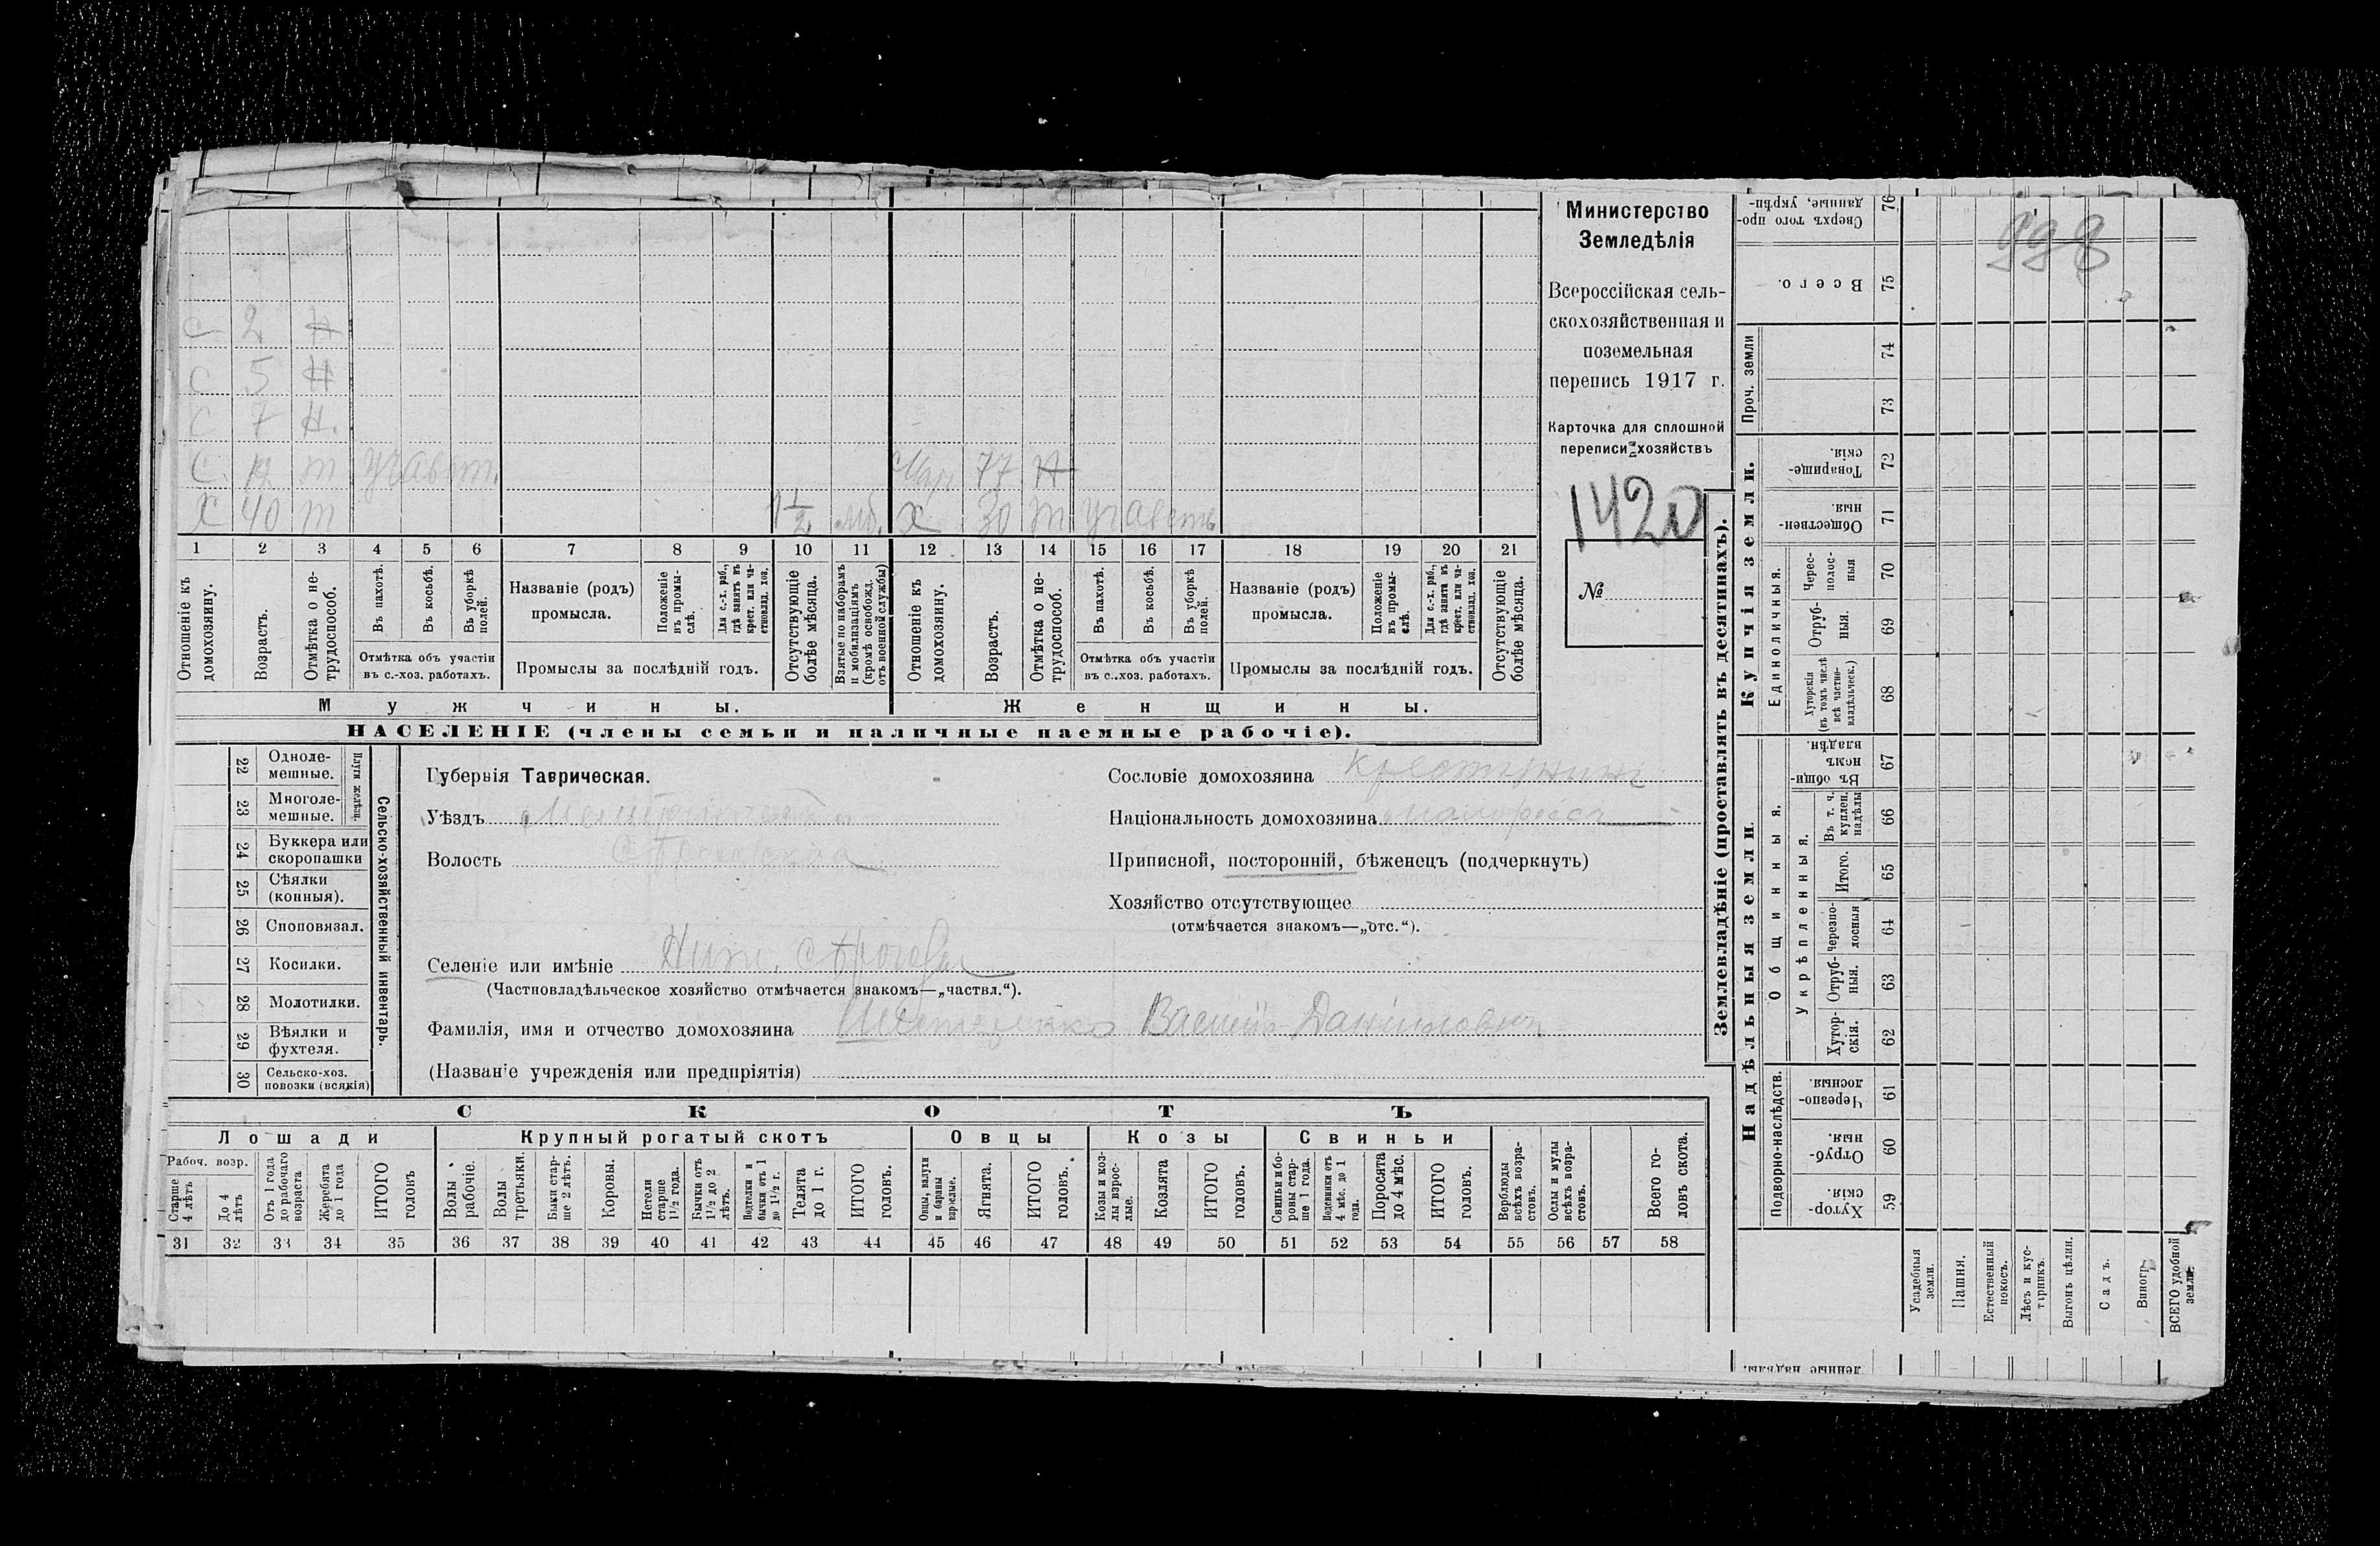 Министерство
Земледѣлія
Всероссійская сель-
скохозяйственная и
поземельная
перепись 1917 г.
Карточка для сплошной
переписи хозяйствъ
1420
№
998
С 2 Н
С 5 Н
С 7 Н.
С т участ.
Х 40 т 1½ моб.
77 Н
Х 30 т участь
1 2 3 4 5 6 7 8 9 10 11 12 13 14 15 16 17 18 19 20 21
Отношеніе къ домохозяину.
Возрастъ.
Отмѣтка о не-трудоспособ.
Въ пахотѣ.
Въ косьбѣ.
Въ уборкѣ полей.
Отмѣтка объ участіи
въ с.-хоз. работахъ.
Названіе (родъ)
промысла.
Положеніе въ промы-слѣ.
Для с.-х. раб., гдѣ занятъ въ крест. или ча-стновлад. хоз.
Промыслы за послѣдній годъ.
Отсутствующіе болѣе мѣсяца.
Взятые по наборамъ и мобилизаціямъ (кромѣ освобожд. отъ военной службы)
Отношеніе къ домохозяину.
Возрастъ.
Отмѣтка о не-трудоспособ.
Въ пахотѣ.
Въ косьбѣ.
Въ уборкѣ полей.
Отмѣтка объ участіи
въ с.-хоз. работахъ.
Названіе (родъ)
промысла.
Положеніе въ промы-слѣ.
Для с.-х. раб., гдѣ занята въ крест. или ча-стновлад. хоз.
Промыслы за послѣдній годъ.
Отсутствующіе болѣе мѣсяца.
Мужчины.
Женщины.
НАСЕЛЕНІЕ (члены семьи и наличные наемные рабочіе).
Сельско-хозяйственный инвентарь.
Плуги желѣзн.
22 Одноле-мешные.
23 Многоле-мешные.
24 Буккера или скоропашки
25 Сѣялки (конныя).
26 Споповязал.
27 Косилки.
28 Молотилки.
29 Вѣялки и фухтеля.
30 Сельско-хоз. повозки (всякія)
Губернія Таврическая.
Уѣздъ
Волость
Селеніе или имѣніе Ниж. Сѣрогозы
(Частновладѣльческое хозяйство отмѣчается знакомъ—„частвл.“).
Фамилія, имя и отчество домохозяина Василій Даниловичъ
(Названіе учрежденія или предпріятія)
Сословіе домохозяина Крестьянинъ
Національность домохозяина малороссъ
Приписной, посторонній, бѣженецъ (подчеркнуть)
Хозяйство отсутствующее
(отмѣчается знакомъ—„отс.“).
СКОТЪ
Лошади
Крупный рогатый скотъ
Овцы
Козы
Свиньи
Рабоч. возр.
Старше 4 лѣтъ
До 4 лѣтъ
Отъ 1 года до рабочаго возраста
Жеребята до 1 года
ИТОГО головъ
Волы рабочіе.
Волы третьяки.
Быки стар-ше 2 лѣтъ.
Коровы.
Нетели старше 1½ года.
Бычки отъ 1½ до 2 лѣтъ.
Подтелки и бычки отъ 1 до 1½ г.
Телята до 1 г.
ИТОГО головъ.
Овцы, валухи и бараны взрослые.
Ягнята.
ИТОГО головъ.
Козы и коз-лы взрос-лые.
Козлята
ИТОГО головъ.
Свиньи и бо-ровы стар-ше 1 года.
Подсвинки отъ 4 мѣс. до 1 года.
Поросята до 4 мѣс.
ИТОГО головъ.
Верблюды всѣхъ возра-стовъ.
Ослы и мулы всѣхъ возра-стовъ.
Всего го-ловъ скота.
31 32 33 34 35 36 37 38 39 40 41 42 43 44 45 46 47 48 49 50 51 52 53 54 55 56 57 58
Землевладѣніе (проставлять въ десятинахъ).
Надѣльныя земли.
Купчія земли.
Проч. земли
Подворно-наслѣдств.
Общинныя.
Укрѣпленныя.
Единоличныя.
Хутор-скія. 59
Отруб-ныя. 60
Черезпо-лосныя. 61
Хутор-скія. 62
Отруб-ныя. 63
Черезпо-лосныя 64
Итого. 65
Въ т. ч. куплен. надѣлы 66
Въ общи-номъ владѣн. 67
Хуторскія (въ томъ числѣ всѣ частно-владѣльческ.) 68
Отруб-ныя. 69
Черес-полос-ныя 70
Обществен-ныя. 71
Товарище-скія. 72
73
74
Всего. 75
Сверхъ того про-данные, укрѣп- 76
ленные надѣлы.
Усадебныя земли.
Пашня.
Естественный покосъ.
Лѣсъ и кус-тарникъ.
Выгонъ цѣлин.
Садъ.
Виногр.
ВСЕГО удобной земли.